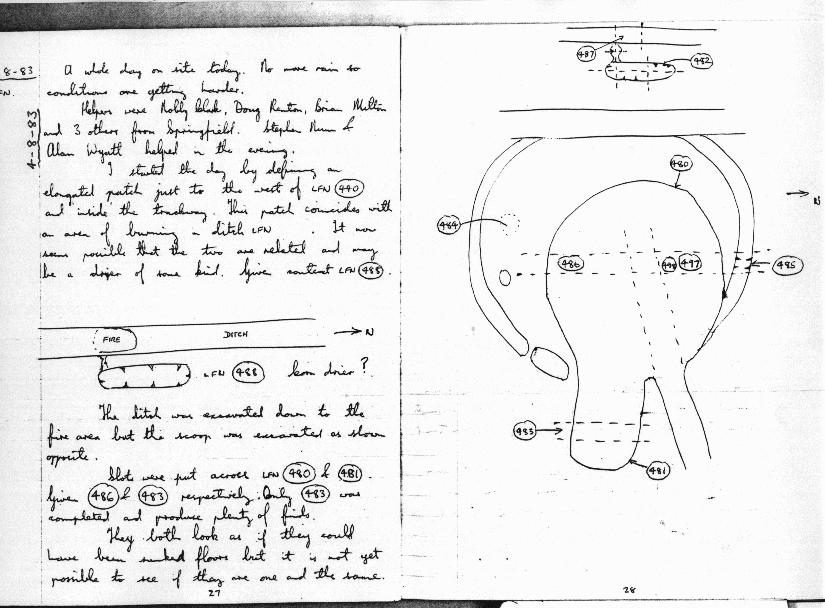 8-83
FN.
4-8-83
A whole day on site today. No more rain so
conditions are getting harder.
Helpers were Molly Black, Doug Renton, Brian Milton
and 3 others from Springfield. Stephen Nunn &
Alan Wyatt helped in the evening.
I started the day by defining an
elongated patch just to the west of LFN 440
and inside the trackway. This patch coincides with
an area of burning in ditch LFN . It now
seems possible that the two are related and may
be a drier of some kind. Given context LFN 488.
FIRE DITCH → N
LFN 488 Corn drier?
The ditch was excavated down to the
fire area but the scoop was excavated as shown
opposite.
Slots were put across LFN 480 & 481.
Given 486 & 483 respectively. Only 483 was
completed and produce plenty of finds.
They both look as if they could
have been sunked floors but it is not yet
possible to see if they are one and the same.
27
487
482
480
N
484
486
497
485
483
481
28